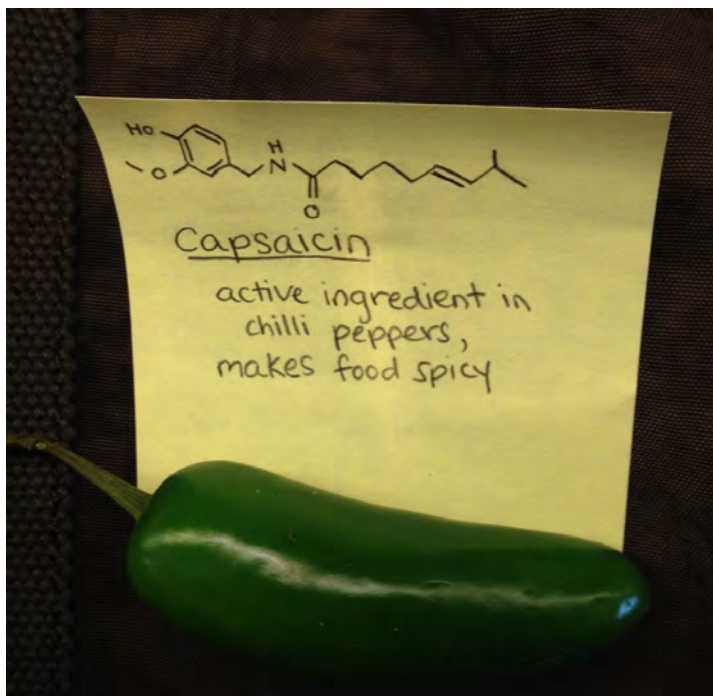 HO
H
N
O
O
Capsaicin
active ingredient in
chilli peppers,
makes food spicy